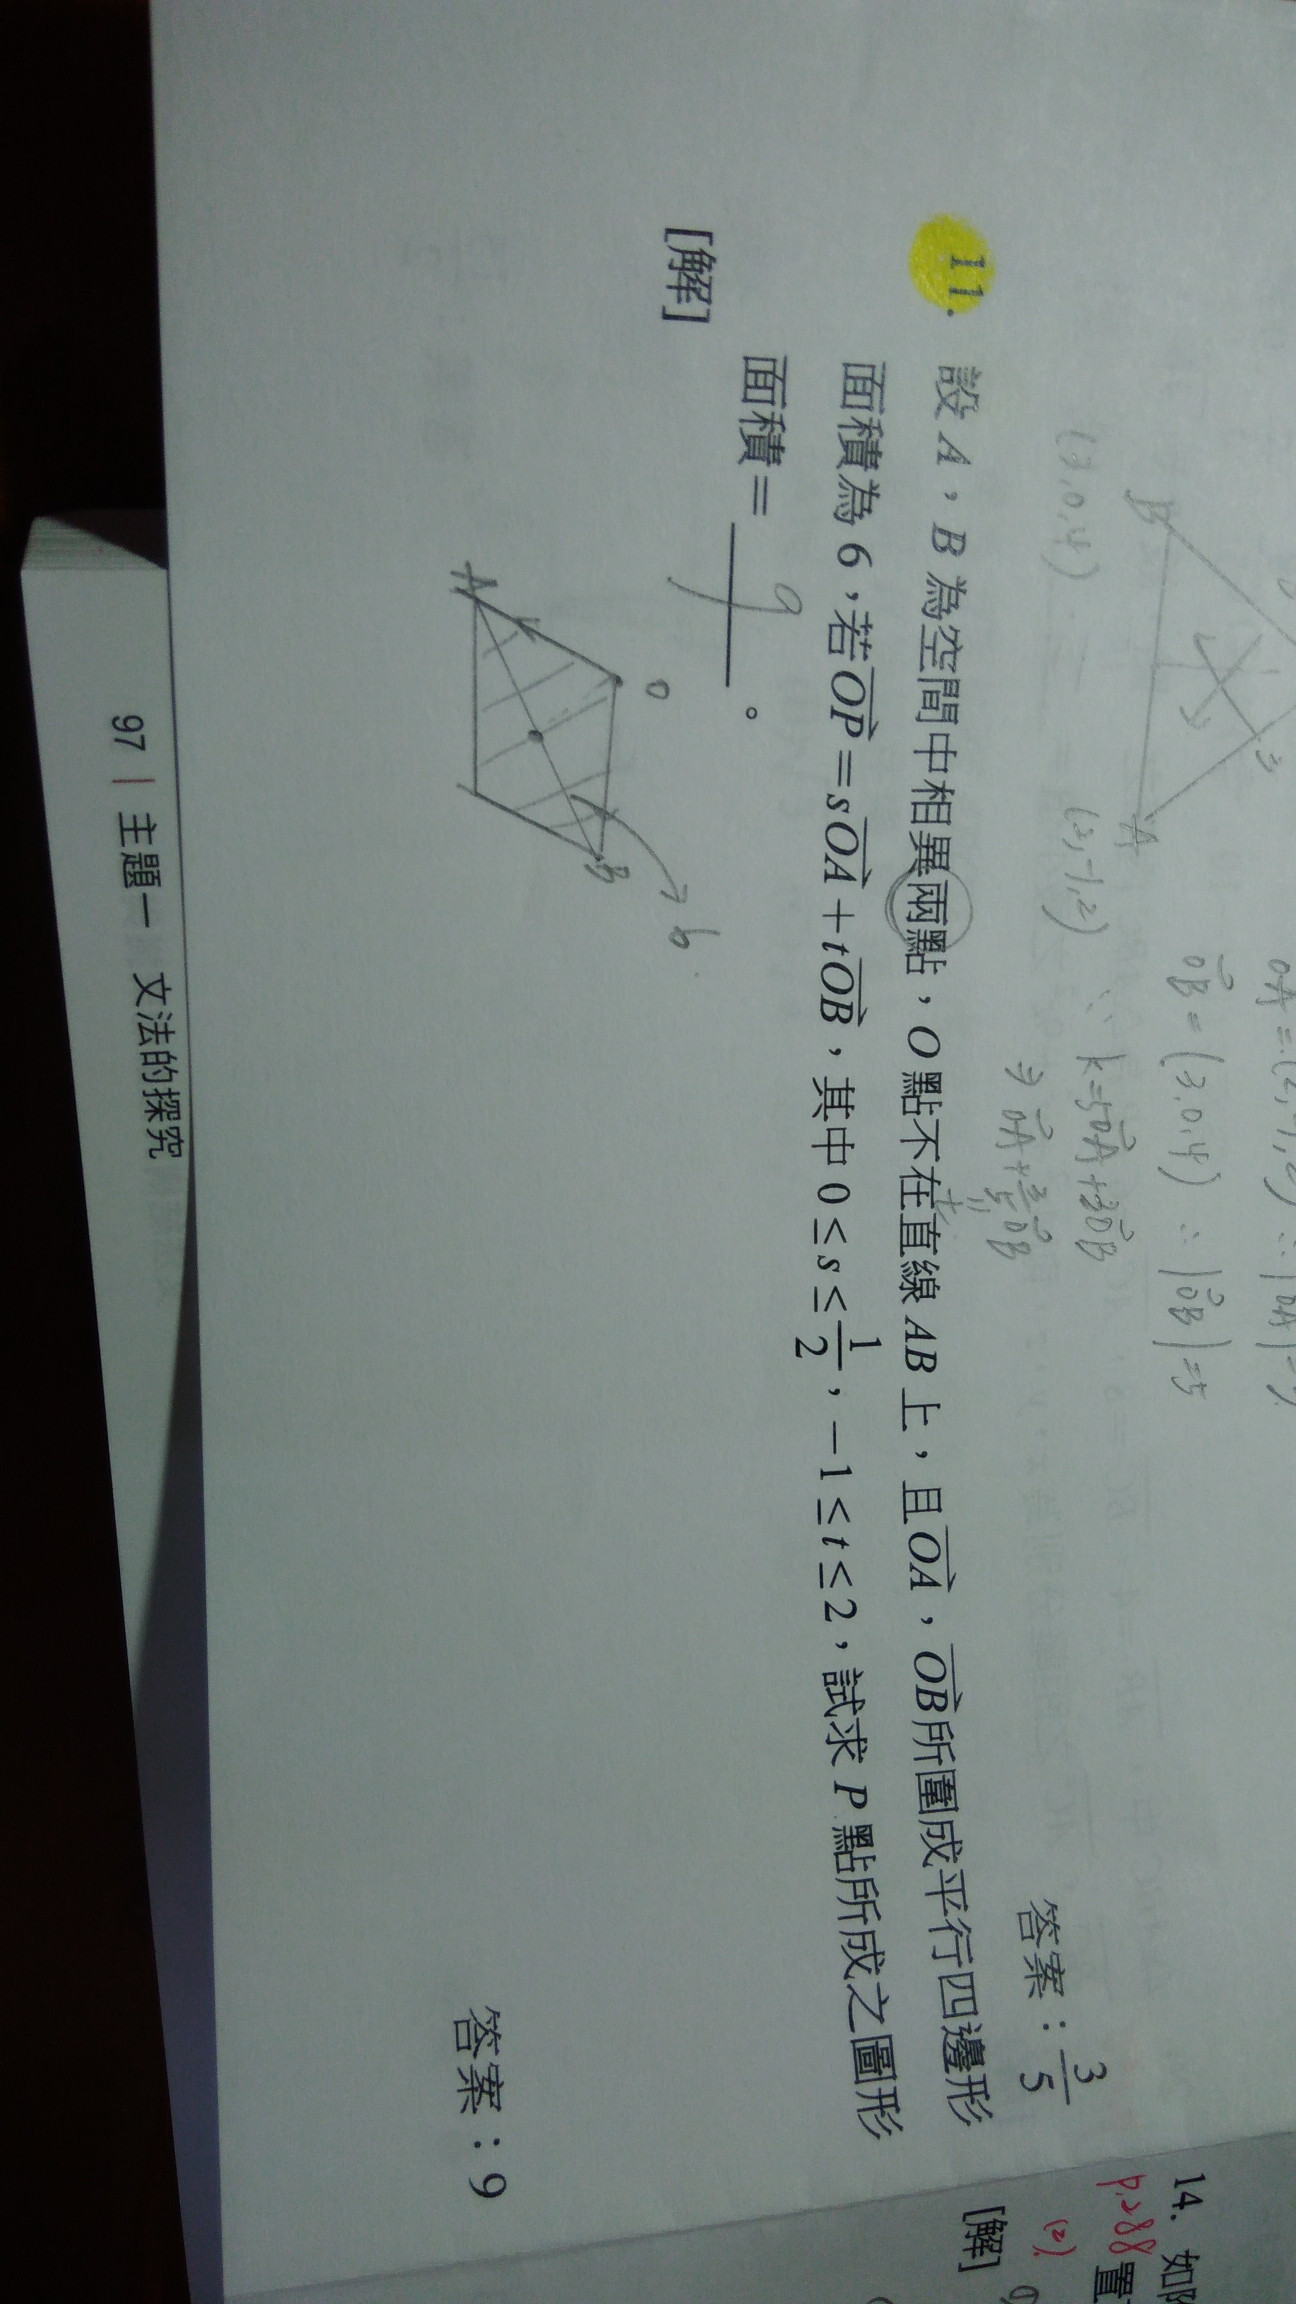 B
A
3
(3,0,4)
(2,-1,2)
\vec{OB}=(3,0,4) ∴|\vec{OB}|=5
∵ k=5\vec{OA}+3\vec{OB}
⇒ \vec{OA}+\frac{3}{5}\vec{OB}
答案：\frac{3}{5}
11. 設 A，B 為空間中相異兩點，O 點不在直線 AB 上，且\vec{OA}，\vec{OB}所圍成平行四邊形
面積為 6，若\vec{OP}=s\vec{OA}+t\vec{OB}，其中 0≤s≤\frac{1}{2}，−1≤t≤2，試求 P 點所成之圖形
面積＝ 9 。
[解]
O
A
B
6
答案：9
97 | 主題一 文法的探究
14. 如
p.288 置
(2)
[解]